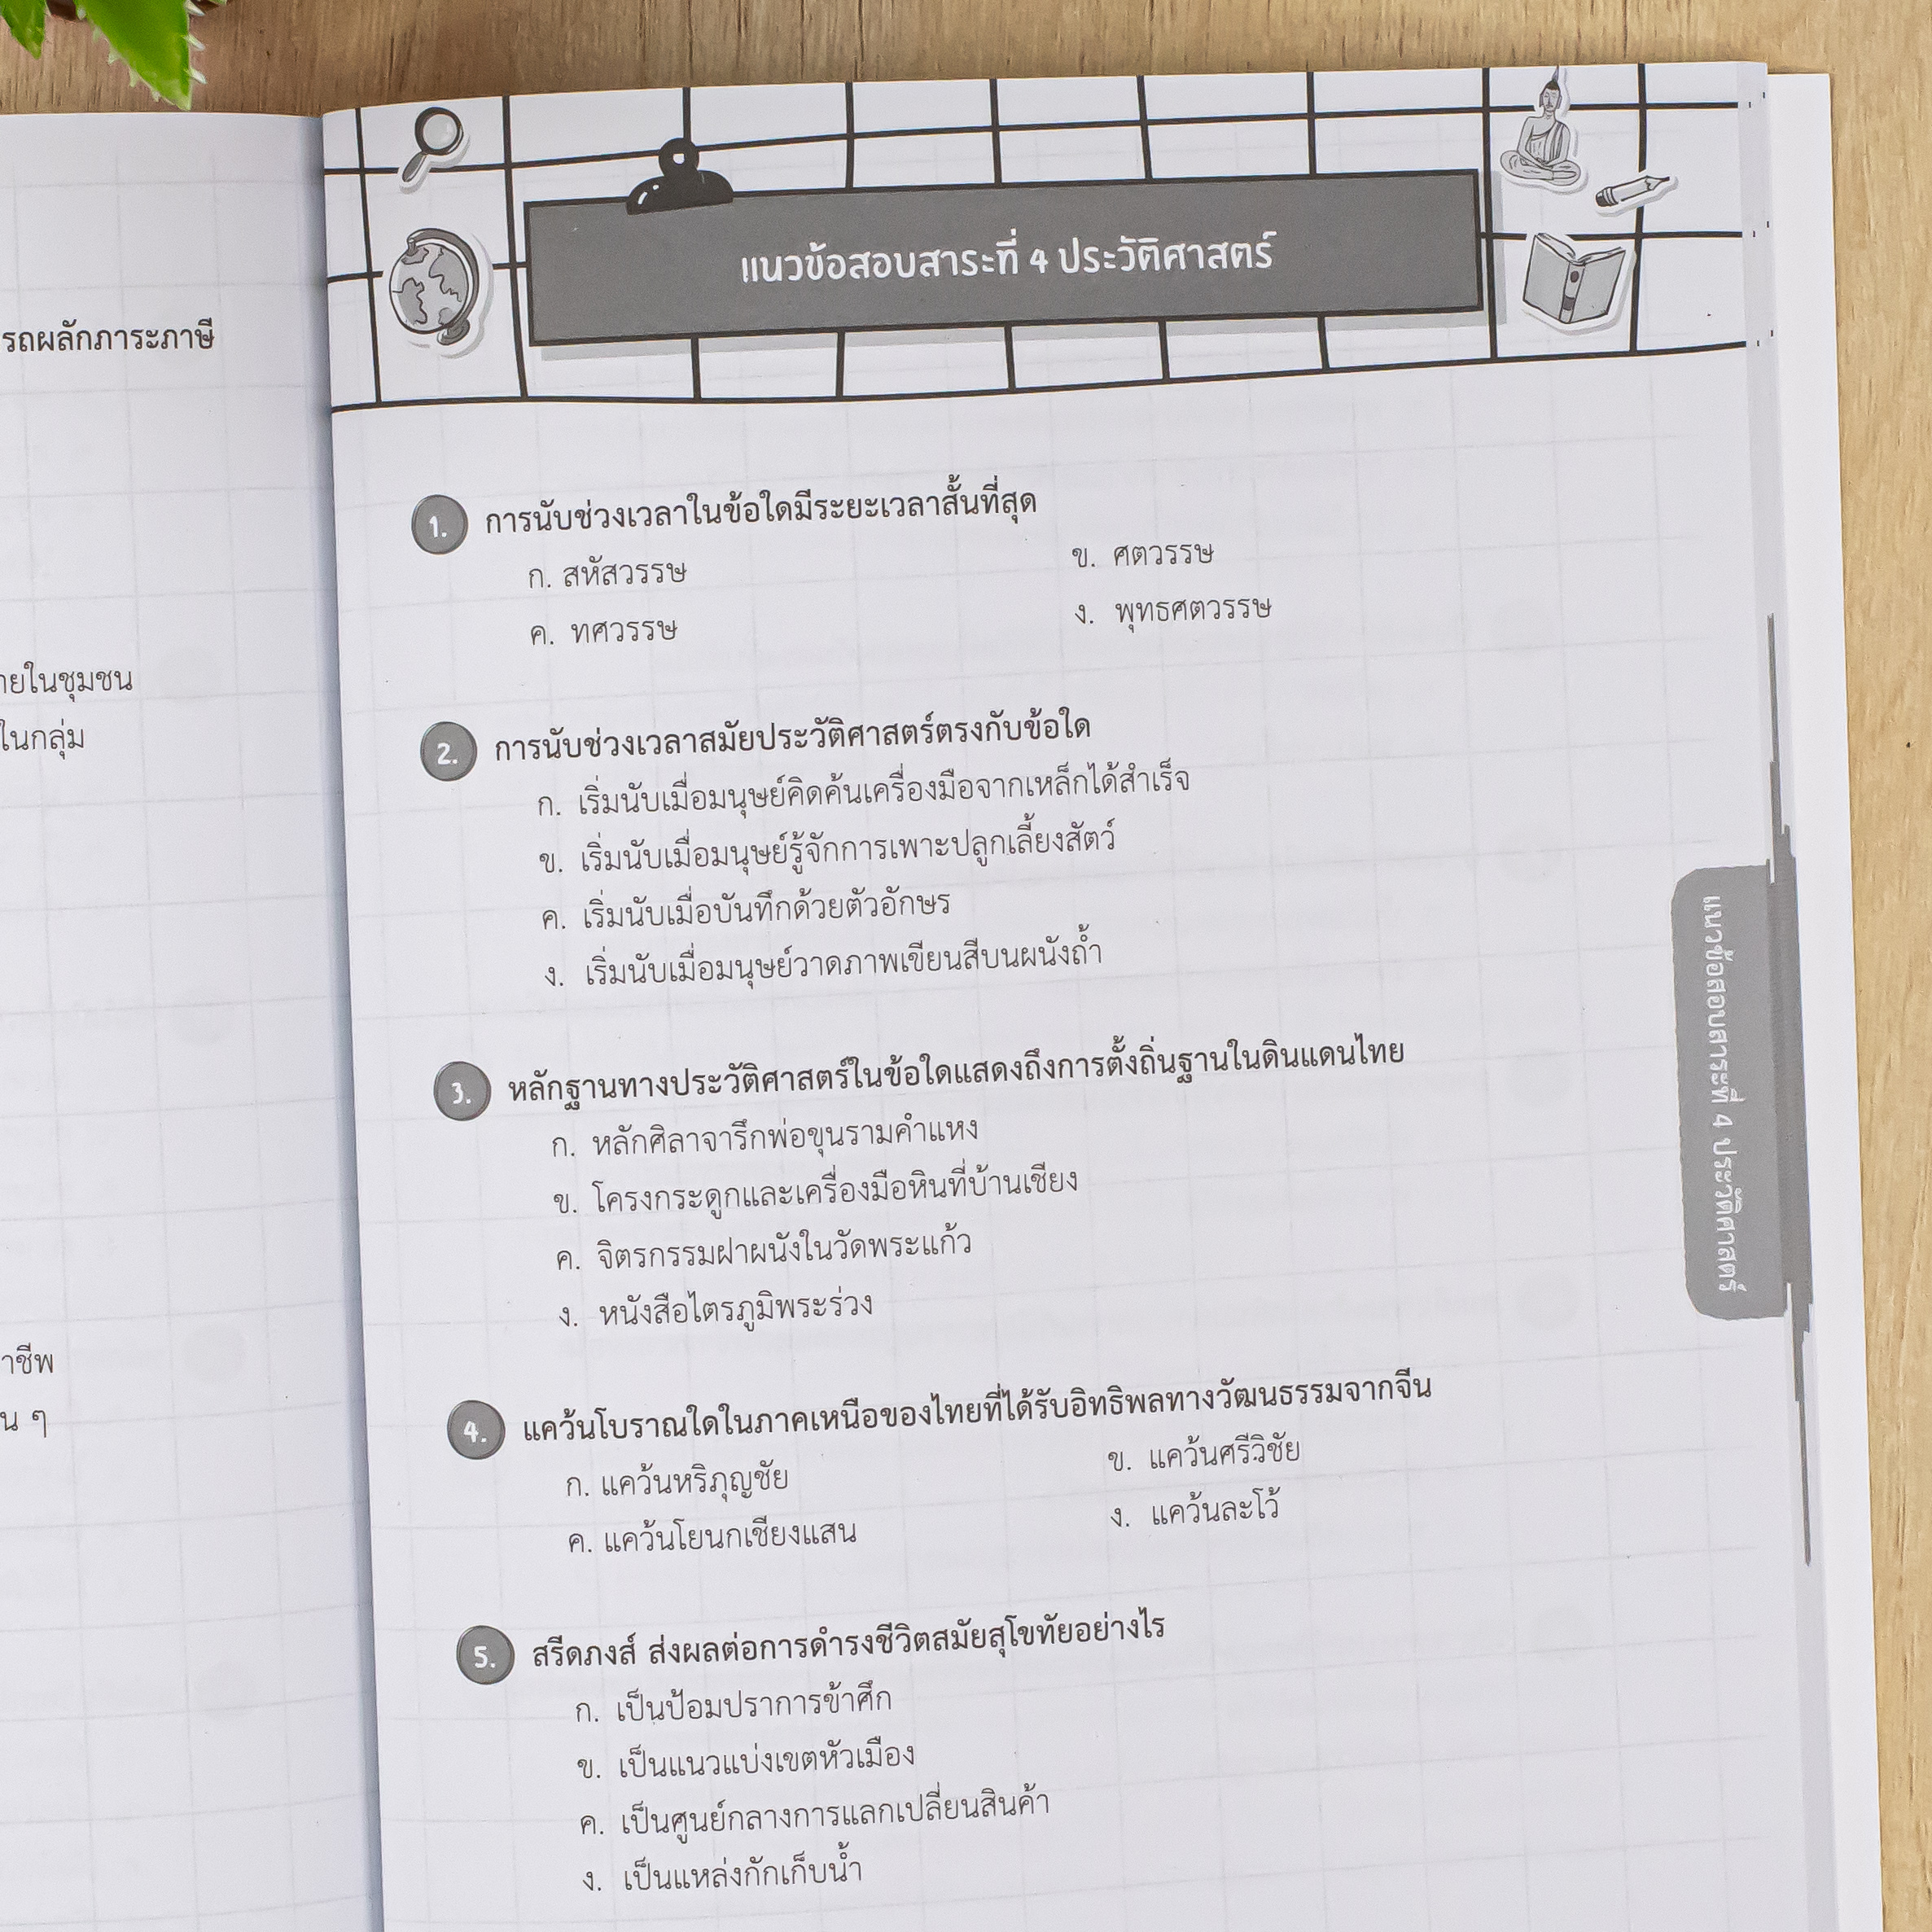 รถผลักภาระภาษี
ายในชุมชน
ในกลุ่ม
าชีพ
น ๆ
แนวข้อสอบสาระที่ 4 ประวัติศาสตร์
1. การนับช่วงเวลาในข้อใดมีระยะเวลาสั้นที่สุด
ก. สหัสวรรษ ข. ศตวรรษ
ค. ทศวรรษ ง. พุทธศตวรรษ
2. การนับช่วงเวลาสมัยประวัติศาสตร์ตรงกับข้อใด
ก. เริ่มนับเมื่อมนุษย์คิดค้นเครื่องมือจากเหล็กได้สำเร็จ
ข. เริ่มนับเมื่อมนุษย์รู้จักการเพาะปลูกเลี้ยงสัตว์
ค. เริ่มนับเมื่อบันทึกด้วยตัวอักษร
ง. เริ่มนับเมื่อมนุษย์วาดภาพเขียนสีบนผนังถ้ำ
3. หลักฐานทางประวัติศาสตร์ในข้อใดแสดงถึงการตั้งถิ่นฐานในดินแดนไทย
ก. หลักศิลาจารึกพ่อขุนรามคำแหง
ข. โครงกระดูกและเครื่องมือหินที่บ้านเชียง
ค. จิตรกรรมฝาผนังในวัดพระแก้ว
ง. หนังสือไตรภูมิพระร่วง
4. แคว้นโบราณใดในภาคเหนือของไทยที่ได้รับอิทธิพลทางวัฒนธรรมจากจีน
ก. แคว้นหริภุญชัย ข. แคว้นศรีวิชัย
ค. แคว้นโยนกเชียงแสน ง. แคว้นละโว้
5. สรีดภงส์ ส่งผลต่อการดำรงชีวิตสมัยสุโขทัยอย่างไร
ก. เป็นป้อมปราการข้าศึก
ข. เป็นแนวแบ่งเขตหัวเมือง
ค. เป็นศูนย์กลางการแลกเปลี่ยนสินค้า
ง. เป็นแหล่งกักเก็บน้ำ
แนวข้อสอบสาระที่ 4 ประวัติศาสตร์